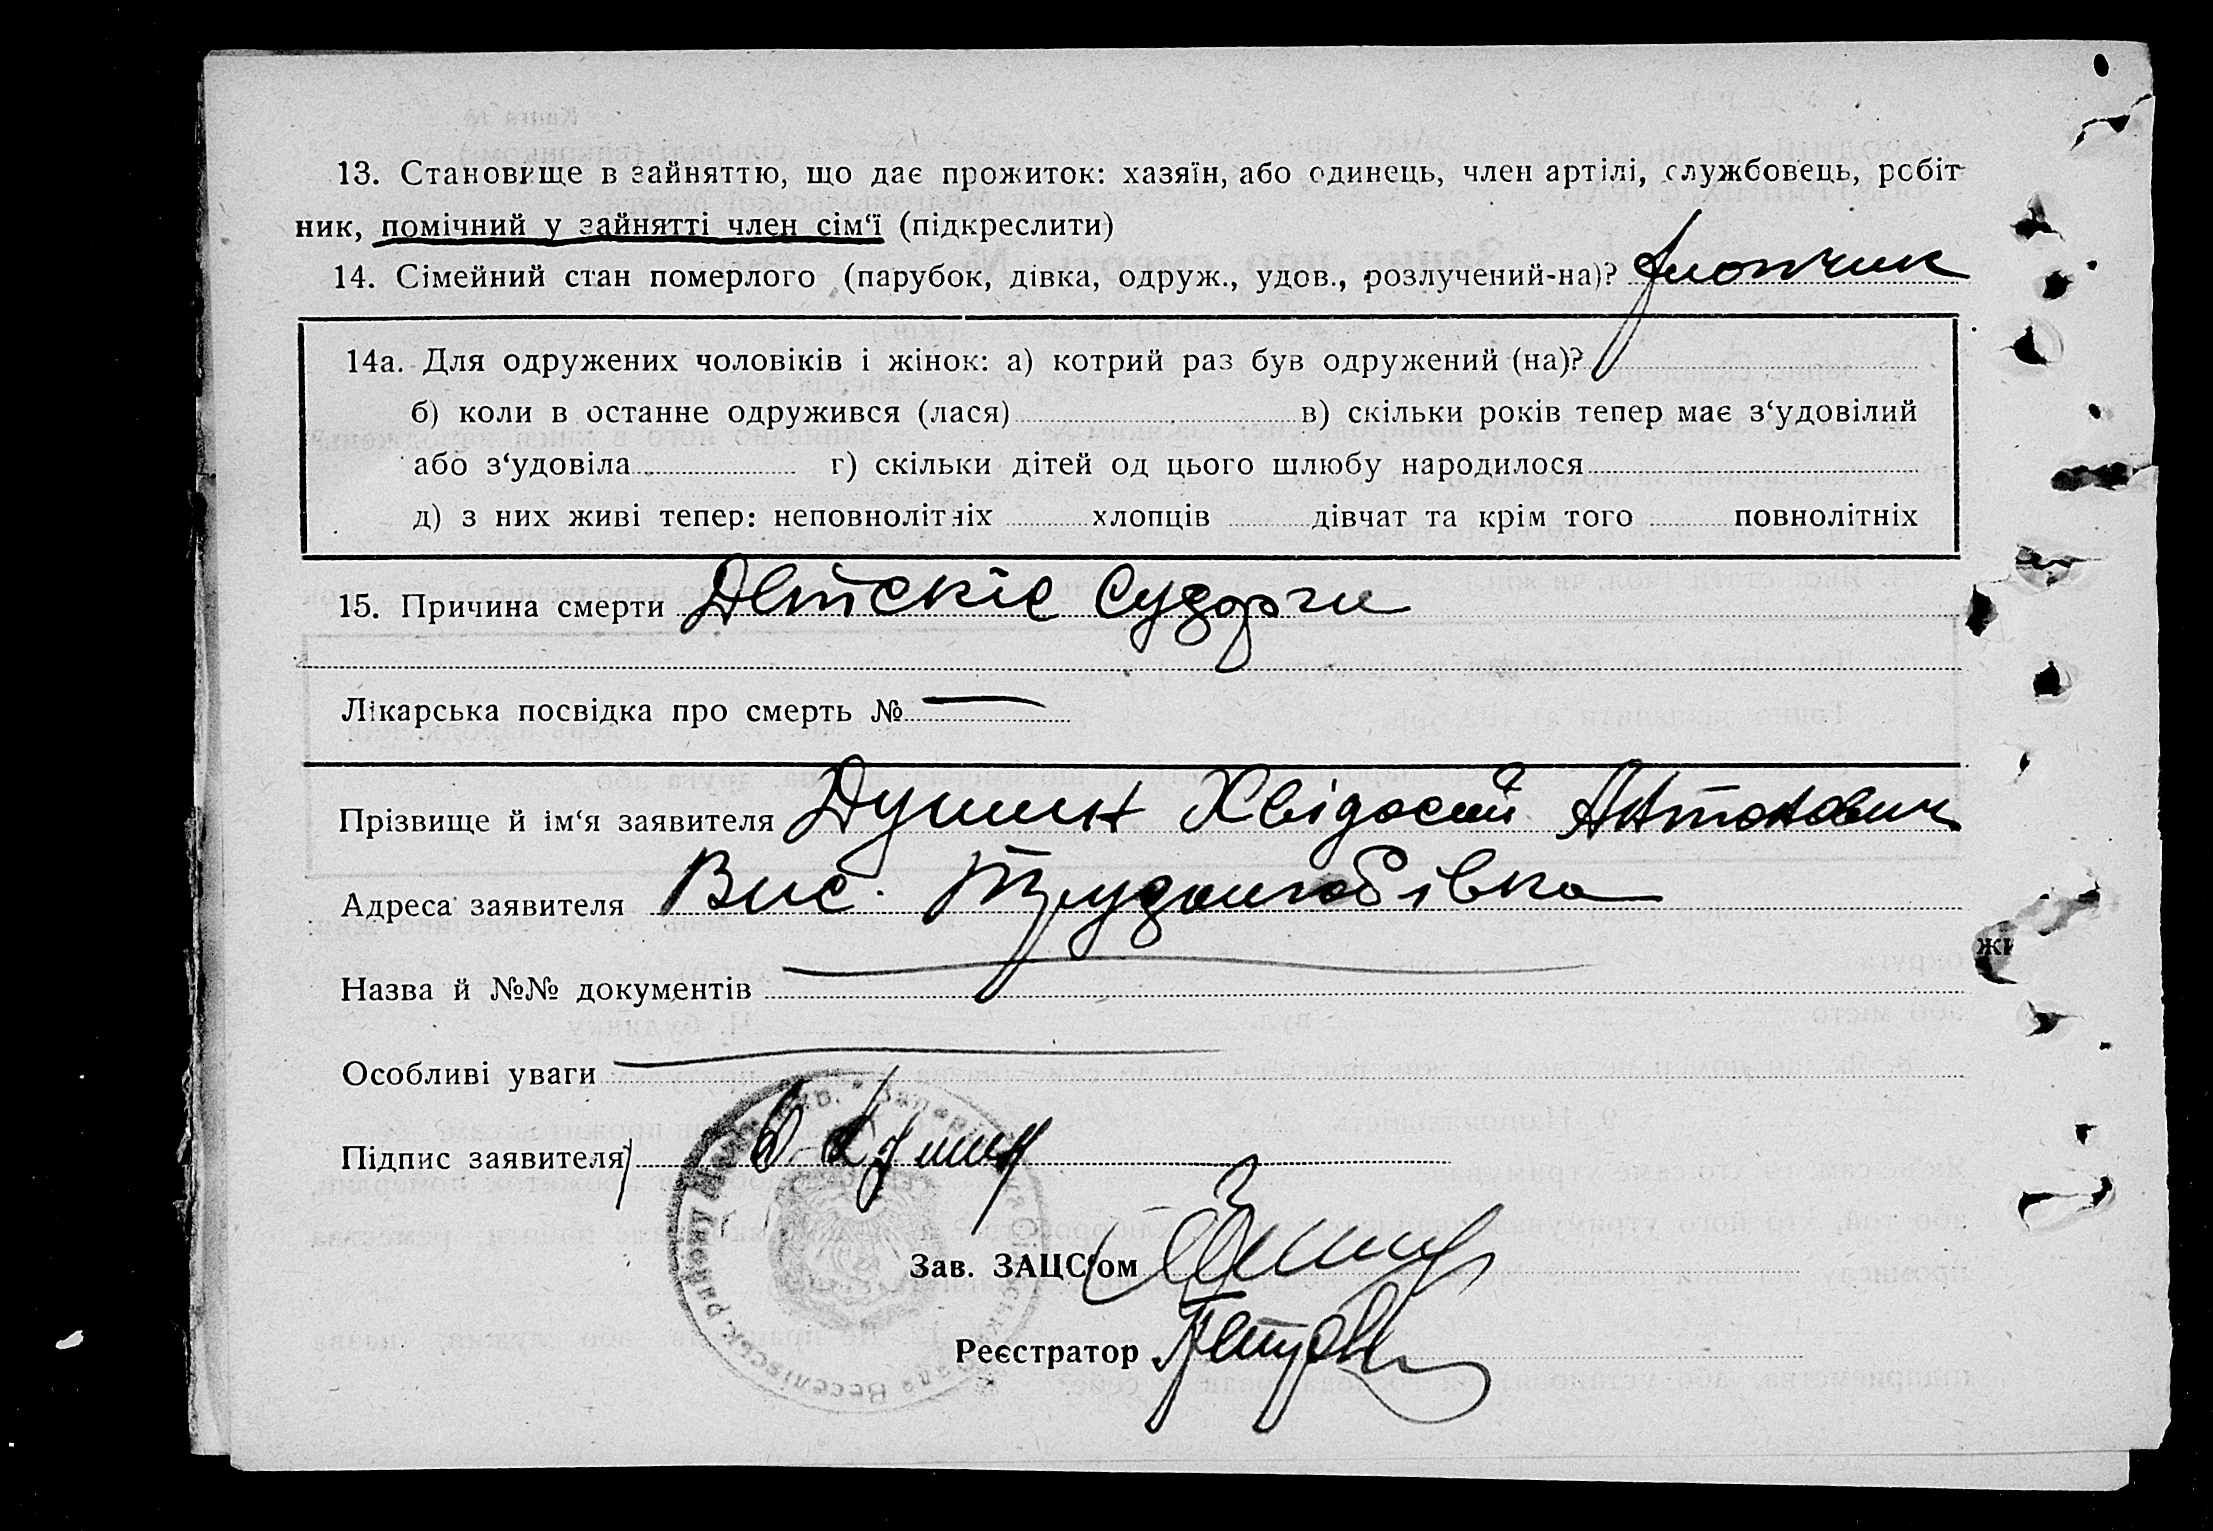 13. Становище в зайняттю, що дає прожиток: хазяїн, або одинець, член артілі, службовець, робіт-
ник, помічний у зайнятті член сім‘ї (підкреслити)
14. Сімейний стан померлого (парубок, дівка, одруж., удов., розлучений-на)? хлопчик
14а. Для одружених чоловіків і жінок: а) котрий раз був одружений (на)?
б) коли в останнє одружився (лася) в) скільки років тепер має з‘удовілий
або з‘удовіла г) скільки дітей од цього шлюбу народилося
д) з них живі тепер: неповнолітніх хлопців дівчат та крім того повнолітніх
15. Причина смерти Детскіе Судорги
Лікарська посвідка про смерть №
Прізвище й ім‘я заявителя Душин Хвідосий Антонович
Адреса заявителя Вис. Трудолюбівка
Назва й №№ документів
Особливі уваги
Підпис заявителя
Зав. ЗАЦС‘ом
Реєстратор
жи